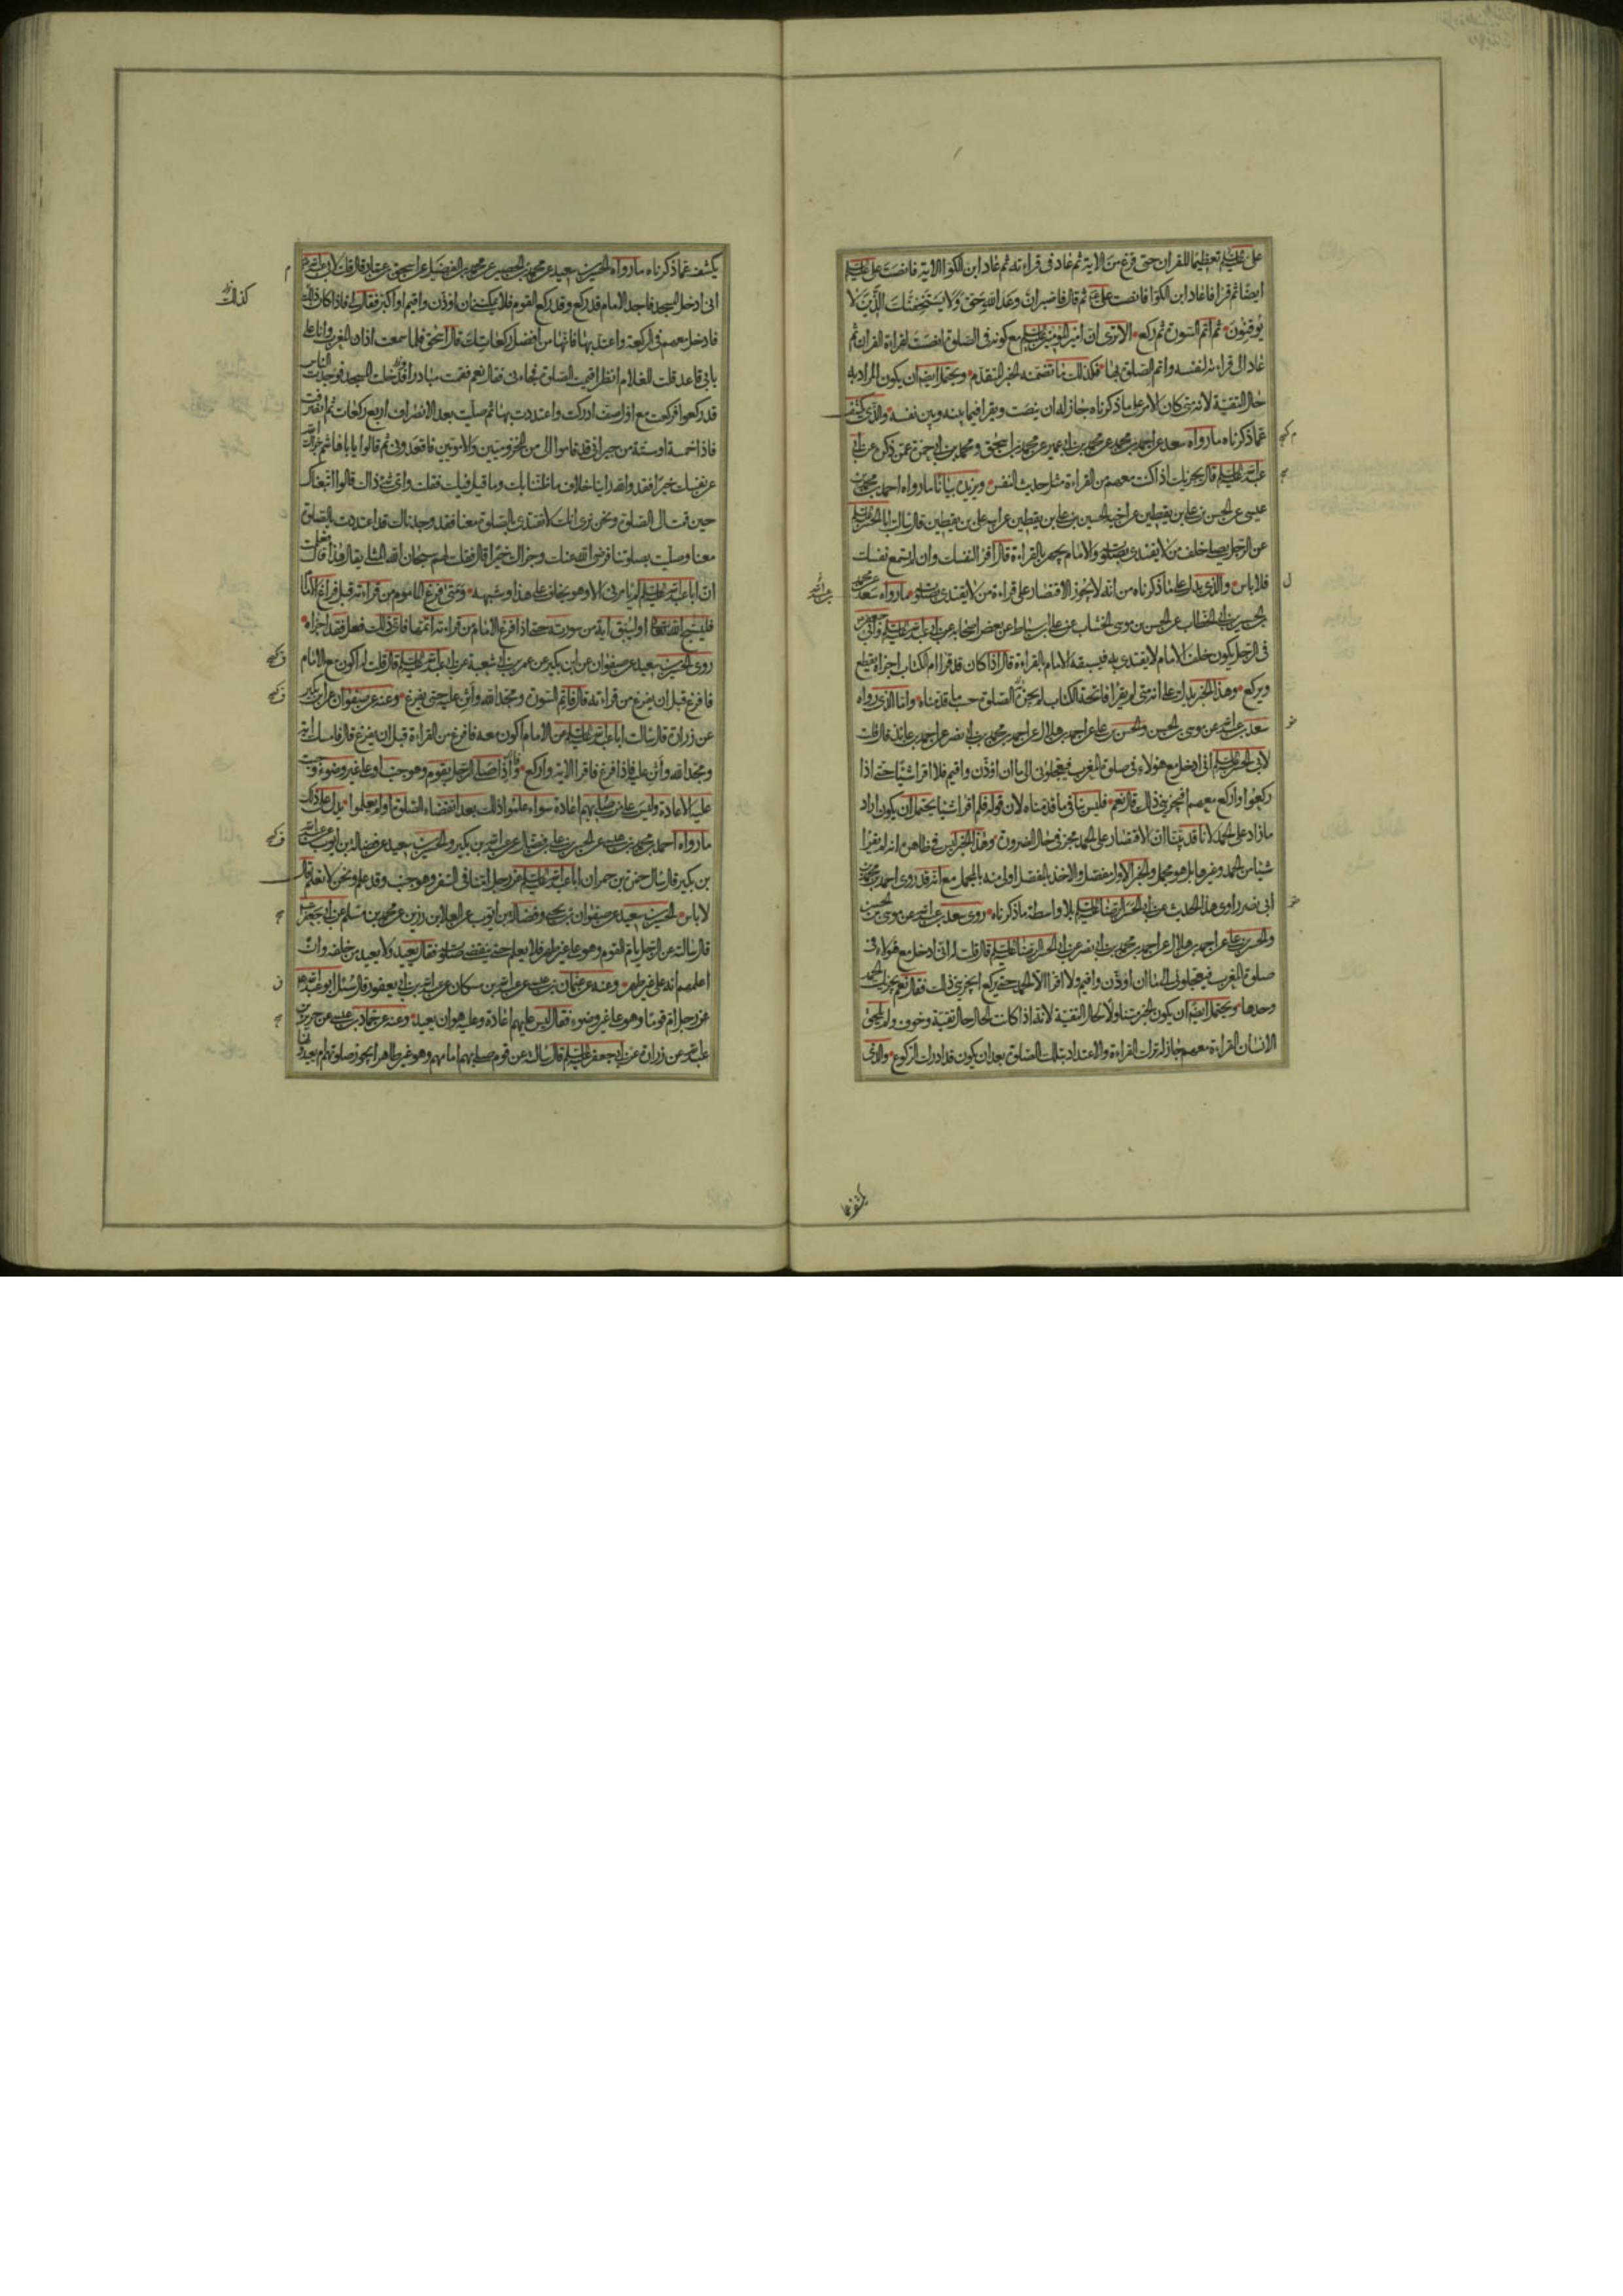 على عليه السلم تعظيما للقران حتى فرغ من الاية ثم عاد فى قراءته ثم عاد ابن الكوا الاية فانصت على عليه السلم
ايضا ثم قرا فاعاد ابن الكوا فانصت على ثم قال فاصبر ان وعد الله حق ولا يستخفنك الذين لا
يوقنون ثم اتم السورة ثم ركع الا ترى ان امير المؤمنين عليه السلم مع كونه فى الصلوة انصت لقراءة القران ثم
عاد الى قراءته لنفسه واتم الصلوة بها فكذلك ما تضمنه الخبر المتقدم ويحتمل ايضا ان يكون المراد به
حال التقية لانه متى كان الامر على ما ذكرناه جاز له ان ينصت ويقرا فيما بينه وبين نفسه والذى يكشف
عما ذكرناه ما رواه سعد عن احمد بن محمد عن محمد بن ابى عمير عن محمد بن اسحق ومحمد بن ابى حمزة عمن ذكره عن ابى
عبد الله عليه السلم قال يجزيك اذا كنت معهم من القراءة مثل حديث النفس ويزيده بيانا ما رواه احمد بن محمد بن
عيسى عن الحسن بن على بن يقطين عن اخيه الحسين بن على بن يقطين عن ابيه على بن يقطين قال سالت ابا الحسن عليه السلم
عن الرجل يصلى خلف من لا يقتدى بصلوته والامام يجهر بالقراءة قال اقرا لنفسك وان لم تسمع نفسك
فلا باس والذى يدل على ما ذكرناه من انه لا يجوز الاقتصار على قراءة من لا يقتدى بصلوته ما رواه سعد عن محمد
بن الحسين بن ابى الخطاب عن الحسن بن موسى الخشاب عن على بن اسباط عن بعض اصحابه عن ابى عبد الله عليه السلم وابى جعفر
فى الرجل يكون خلف الامام لا يقتدى به فيسبقه الامام بالقراءة قال اذا كان قد قرا ام الكتاب اجزاه يقطع
ويركع وهذا الخبر يدل على انه متى لم يقرا فاتحة الكتاب لم يجزه الصلوة حسب ما قدمناه واما الذى رواه
سعد بن عبد الله عن موسى بن الحسن والحسن بن على عن احمد بن هلال عن احمد بن محمد بن ابى نصر عن احمد بن عائذ قال قلت
لابى الحسن عليه السلم انى ادخل مع هؤلاء فى صلوة المغرب فيعجلونى الى ما ان اؤذن واقيم فلا اقرا شيئا حتى اذا
ركعوا واركع معهم افيجزينى ذلك قال نعم فليس ينافى ما قدمناه لان قوله فلم اقرا شيئا يحتمل ان يكون اراد
ما زاد على الحمد لانا قد بينا ان الاقتصار على الحمد مجز فى حال الضرورة وهذا الخبر ليس فى ظاهره انه لم يقرا
شيئا من الحمد وغيرها بل هو مجمل والخبر الاول مفصل والاخذ بالمفصل اولى منه بالمجمل مع انه قد روى احمد بن محمد بن
ابى نصر راوى هذا الحديث عن ابى الحسن الرضا عليه السلم بلا واسطة ما ذكرناه روى سعد بن عبد الله عن موسى بن الحسن
والحسن بن على عن احمد بن هلال عن احمد بن محمد بن ابى نصر عن ابى الحسن الرضا عليه السلم قال قلت له انى ادخل مع هؤلاء فى
صلوة المغرب فيعجلونى الى ما ان اؤذن واقيم ولا اقرا الا الحمد حتى يركع ايجزينى ذلك فقال نعم يجزيك الحمد
وحدها ويحتمل ايضا ان يكون الخبر متناولا لحال التقية لانه اذا كانت الحال حال تقية وخوف ولم يلحق
الانسان القراءة معهم جاز له ترك القراءة والاعتداد بتلك الصلوة بعد ان يكون قد ادرك الركوع والذى
يكشف عما
يكشف عما ذكرناه ما رواه الحسين بن سعيد عن محمد بن الحصين عن محمد بن الفضيل عن اسحق بن عمار قال قلت لابى عبد الله
انى ادخل المسجد فاجد الامام قد ركع وقد ركع القوم فلا يمكننى ان اؤذن واقيم او اكبر فقال لى فاذا كان ذلك
كذلك
فادخل معهم فى الركعة واعتد بها فانها من افضل ركعاتك قال اسحق فلما سمعت اذان المغرب وانا على
بابى قاعد قلت للغلام انظر اقيمت الصلوة فجاءنى فقال نعم فقمت مبادرا فدخلت المسجد فوجدت الناس
قد ركعوا فركعت مع اول صف ادركت واعتددت بها ثم صليت بعد الانصراف اربع ركعات ثم انصرفت
فاذا خمسة او ستة من جيرانى قد قاموا الى من المخزوميين والامويين فاقعدونى ثم قالوا يا با هاشم جزاك الله
عن نفسك خيرا فقد والله راينا خلاف ما ظننا بك وما قيل فيك فقلت واى شىء ذاك قالوا اتبعناك
حين قمت الى الصلوة ونحن نرى انك لا تقتدى بالصلوة معنا فقد وجدناك قد اعتددت بالصلوة
معنا وصليت بصلوتنا فرضى الله عنك وجزاك خيرا قال فقلت لهم سبحان الله المثلى يقال هذا قال فعلمت
ان ابا عبد الله عليه السلم لم يامرنى الا وهو يخاف على هذا وشبهه ومتى فرغ الماموم من قراءته قبل فراغ الامام
فليسبح الله تعالى او ليبق اية من سورته حتى اذا فرغ الامام من قراءته اتمها فاى ذلك فعل فقد اجزاه
روى الحسين بن سعيد عن صفوان عن ابن بكير عن عمر بن ابى شعبة عن ابى عبد الله عليه السلم قال قلت له اكون مع الامام
فافرغ قبل ان يفرغ من قراءته قال فاتم السورة ومجد الله واثن عليه حتى يفرغ وعنه عن صفوان عن ابن بكير
عن زرارة قال سالت ابا عبد الله عليه السلم عن الامام اكون معه فافرغ من القراءة قبل ان يفرغ قال فامسك اية
ومجد الله واثن عليه فاذا فرغ فاقرا الاية واركع واذا صلى الرجل بقوم وهو جنب او على غير وضوء وجب
عليه الاعادة وليس على من صلى بهم اعادة سواء علموا ذلك بعد انقضاء الصلوة او لم يعلموا يدل على ذلك
ما رواه احمد بن محمد بن عيسى عن الحسن بن على بن فضال عن عبد الله بن بكير والحسين بن سعيد عن فضالة بن ايوب عن عبد الله
بن بكير قال سال حمزة بن حمران ابا عبد الله عليه السلم عن رجل امنا فى السفر وهو جنب وقد علم ونحن لا نعلم قال
لا باس الحسين بن سعيد عن صفوان بن يحيى وفضالة بن ايوب عن العلا بن رزين عن محمد بن مسلم عن ابى جعفر
قال سالته عن الرجل يام القوم وهو على غير طهر فلا يعلم حتى ينقضى صلوته فقال يعيد ولا يعيد من خلفه وان
اعلمهم انه على غير طهر وعنه عن عثمان بن عيسى عن عبد الله بن مسكان عن عبد الله بن ابى يعفور قال سئل ابو عبد الله
عن رجل ام قوما وهو على غير وضوء فقال ليس عليهم اعادة وعليه هو ان يعيد وعنه عن حماد بن عيسى عن حريز بن
عبد الله عن زرارة عن ابى جعفر عليه السلم قال سالته عن قوم صلى بهم امامهم وهو غير طاهر ايجوز صلوتهم ام يعيدونها